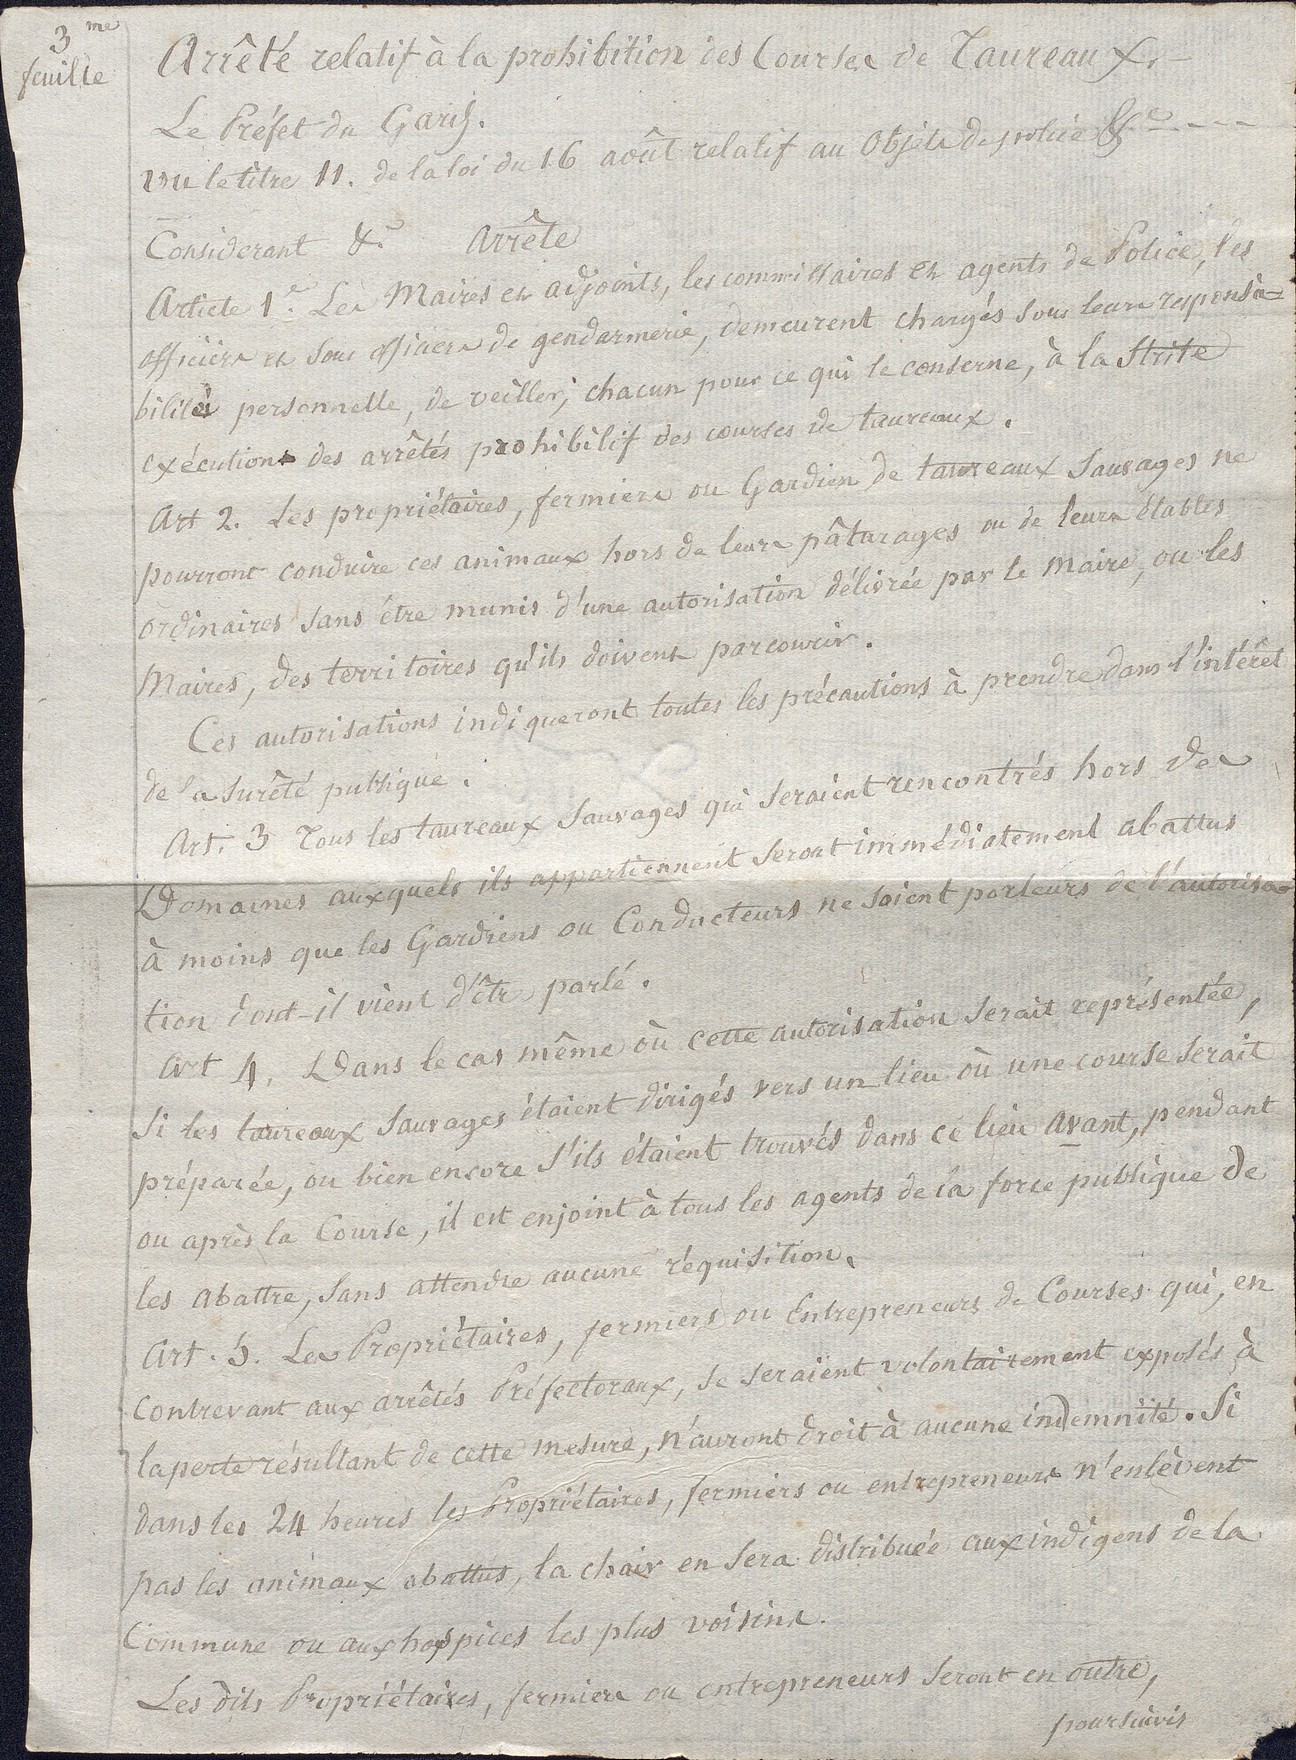 3me
feuille
Arrêté relatif à la prohibition des Courses de Taureaux. –
Le Préfet du Gard.
Vu le titre 11. de la loi du 16 août relatif au Objets de police &ca - - -
Considerant &a Arrête
Article 1er. Les Maires et adjoints, les commissaires et agents de Police, les
officiers et sous officiers de gendarmerie, demeurent chargés sous leurs responsa=
bilités personnelle, de veiller, chacun pour ce qui le conserne, à la strite
exécution des arrêtés prohibitif des courses de taureaux.
Art 2. Les propriétaires, fermiers ou Gardien de taureaux sauvages ne
pourront conduire ces animaux hors de leurs pâturages ou de leurs étables
ordinaires sans être munis d'une autorisation délivrée par le Maire, ou les
Maires, des territoires qu'ils doivent parcourir.
Ces autorisations indiqueront toutes les précautions à prendre dans l'intérêt
de la surêté publique.
Art. 3 Tous les taureaux sauvages qui seraient rencontrés hors des
Domaines auxquels ils appartiennent seront immédiatement abattus
à moins que les Gardiens ou Conducteurs ne soient porteurs de l'autorisa-
tion dont-il vient d'être parlé.
Art 4. Dans le cas même où cette autorisation serait représentée,
si les taureaux sauvages étaient dirigés vers un lieu où une course serait
préparée, ou bien encore s'ils étaient trouvés dans ce lieu avant, pendant
ou après la Course, il est enjoint à tous les agents de la force publique de
les abattre, sans attendre aucune réquisition.
Art. 5. Les Propriétaires, fermiers ou Entrepreneurs de Courses qui, en
contrevant aux arrêtés Préfectoraux, se seraient volontairement exposés à
la perte résultant de cette mesure, n'auront droit à aucune indemnité. Si
dans les 24 heures les Propriétaires, fermiers ou entrepreneurs n'enlèvent
pas les animaux abattus, la chair en sera distribuée aux indigens de la
Commune ou aux hospices les plus voisins.
Les dits Propriétaires, fermiers ou entrepreneurs seront en outre,
poursuivis